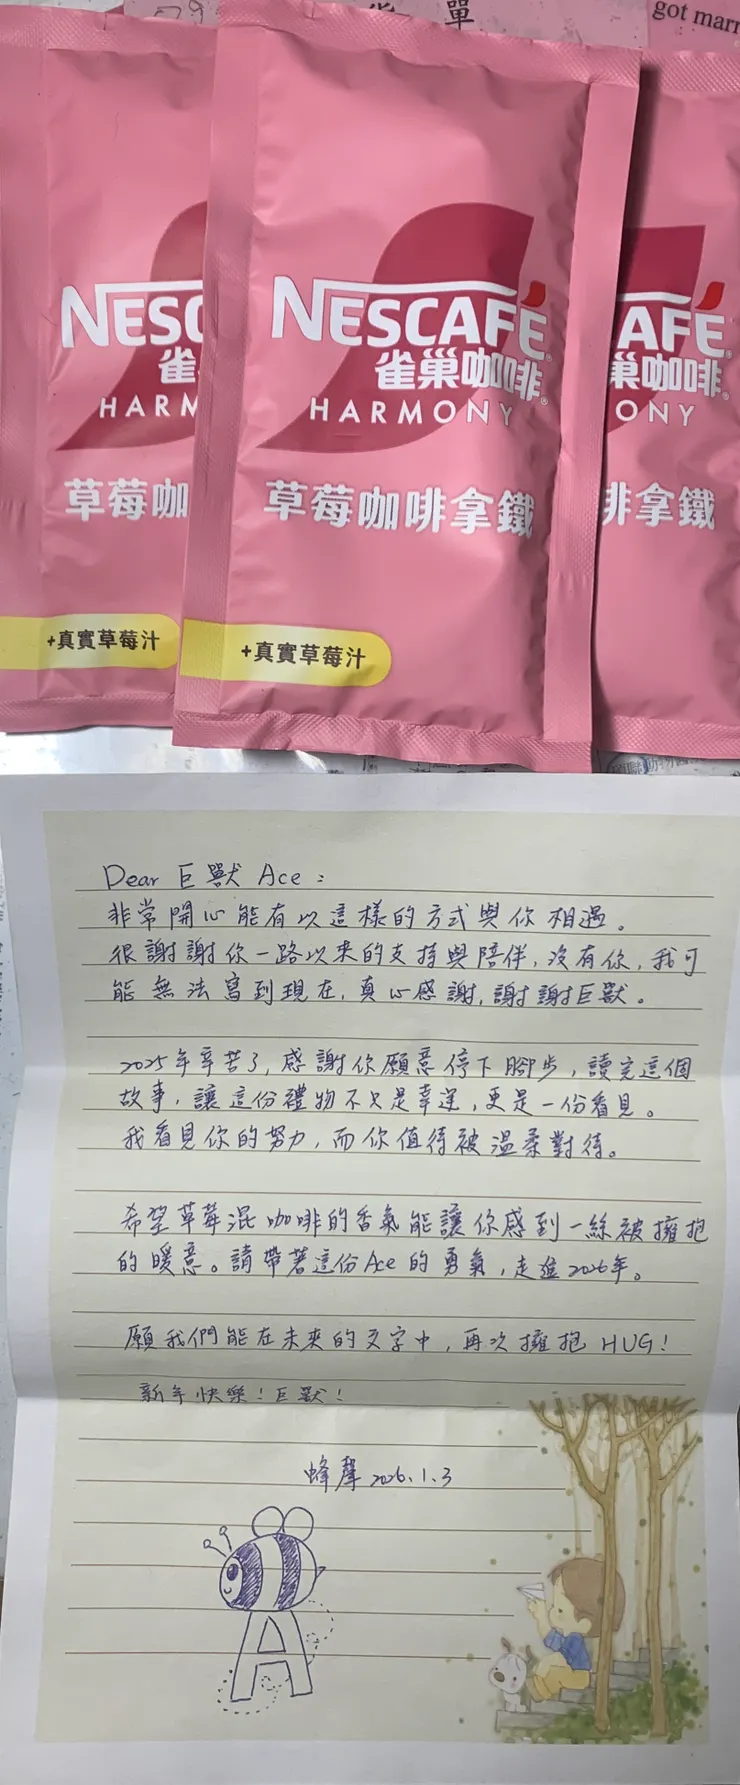 單
got marr
NESC
雀
HARM
草莓咖
+真實草莓汁
NESCAFÉ
雀巢咖啡
HARMONY
草莓咖啡拿鐵
+真實草莓汁
AFÉ
巢咖啡
ONY
啡拿鐵
Dear 巨獸 Ace：
非常開心能有以這樣的方式與你相遇。
很謝謝你一路以來的支持與陪伴，沒有你，我可
能無法寫到現在，真心感謝，謝謝巨獸。
2025年辛苦了，感謝你願意停下腳步，讀完這個
故事，讓這份禮物不只是幸運，更是一份看見。
我看見你的努力，而你值得被溫柔對待。
希望草莓混咖啡的香氣能讓你感到一絲被擁抱
的暖意。請帶著這份Ace的勇氣，走進2026年。
願我們能在未來的文字中，再次擁抱 HUG！
新年快樂！巨獸！
蜂聲 2026.1.3
A